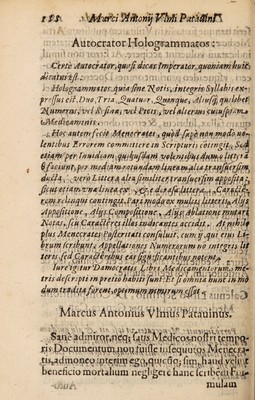 Marci Antonij Vlmi Patauini
Autocrator Hologrammatos:
Certè Autocrator, quasi dicas Imperator, quoniam
Hologrammatos, quia sine Notis, integris Syllabis ex-
pressus est. Duo, Tria, Quatuor, Quinque, Alius quilibet
Numerus, vel
Medicamento.
Hoc autem fecit Menecrates, quod sæpè non modo
lentibus Errorem committere in Scripturis cõtingit, Sed
etiam per Inuidiam, quibusdam volentibus
faciunt, per mediam rotundam lineam alia transuersim
ducta, verò Littera alia similiter transuersim apposita,
Charactè-
rem reliquis contingit. Pari modo ex multis litteris, Alijs
Appositione, Alijs Compositione, Alijs ablatione mutari
Notas, seu Characteres illas iudicantes accidit. At
plus Menecrates Posteritati consuluit, cum is, qui eius Li-
brum scribunt, Appellationes Numerorum integris lit-
teris, sed Characteribus eas significantibus notent.
Iure igitur Damocratis Libri Medicamentorum, me-
tris descripti in pretio habiti sunt: Et si omnia hunc in mo-
dum tradita forent, optimum vtique esset.
Marcus Antonius Vlmus Patauinus.
Sanè admiror, neq; satis Medicos nostri tempo-
ris Documentum non fuisse insequutos Menecra-
tis, admoneo interim ego, quicũq; sim, haud velit
beneficio mortalium negligere hanc scribendi For-
mulam